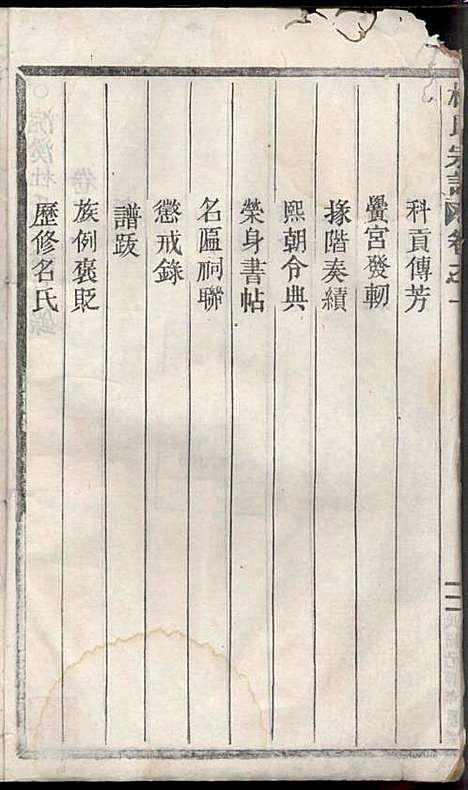 杜氏宗譜 卷之一
科貢傳芳
黌宮發軔
掾階奏績
熙朝令典
榮身書帖
名匾祠聯
懲戒錄
譜跋
族例褒貶
歷修名氏